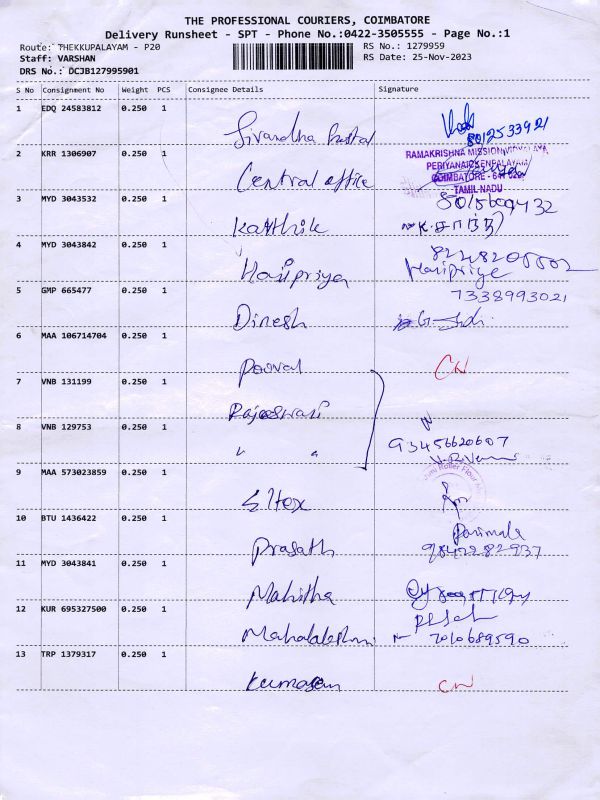 THE PROFESSIONAL COURIERS, COIMBATORE
Delivery Runsheet - SPT - Phone No.:0422-3505555 - Page No.:1
Route: THEKKUPALAYAM - P20
RS No.: 1279959
Staff: VARSHAN
RS Date: 25-Nov-2023
DRS No.: DCJB127995901
S No Consignment No Weight PCS Consignee Details Signature
1 EDQ 24583812 0.250 1
8012533921
2 KRR 1306907 0.250 1 Central office
RAMAKRISHNA MISSION VIDYALAYA
PERIYANAICKENPALAYAM
COIMBATORE - 641 020
TAMIL NADU
3 MYD 3043532 0.250 1 Karthik
4 MYD 3043842 0.250 1 Haripriya Haripriya
5 GMP 665477 0.250 1 Dinesh
7338993021
6 MAA 106714704 0.250 1 CN
7 VNB 131199 0.250 1 Rajeeswari
8 VNB 129753 0.250 1 " "
93456620607
9 MAA 573023859 0.250 1 Sitex
Roller Flour
10 BTU 1436422 0.250 1 Prasath
Parimala
9842282937
11 MYD 3043841 0.250 1 Mahitha
12 KUR 695327500 0.250 1 Mahalakshmi
7010689590
13 TRP 1379317 0.250 1 Kumaran CN